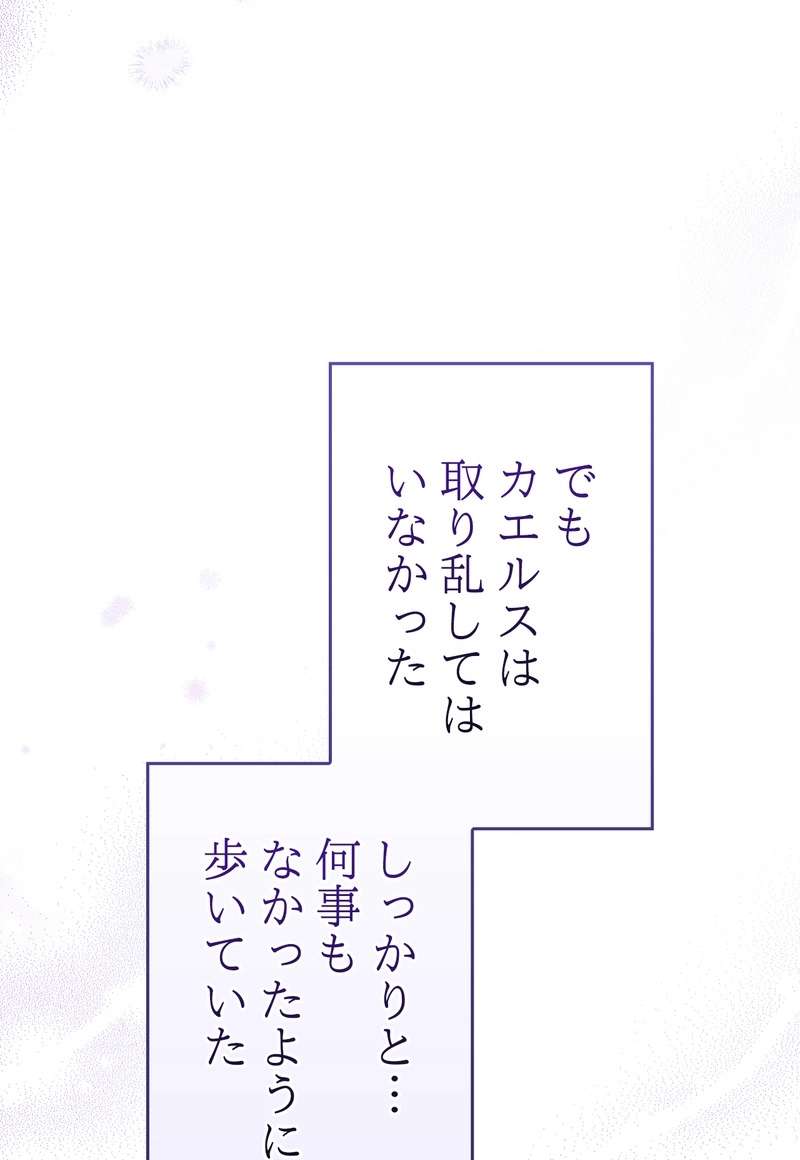 でも
カエルスは
取り乱しては
いなかった
しっかりと…
何事も
なかったように
歩いていた